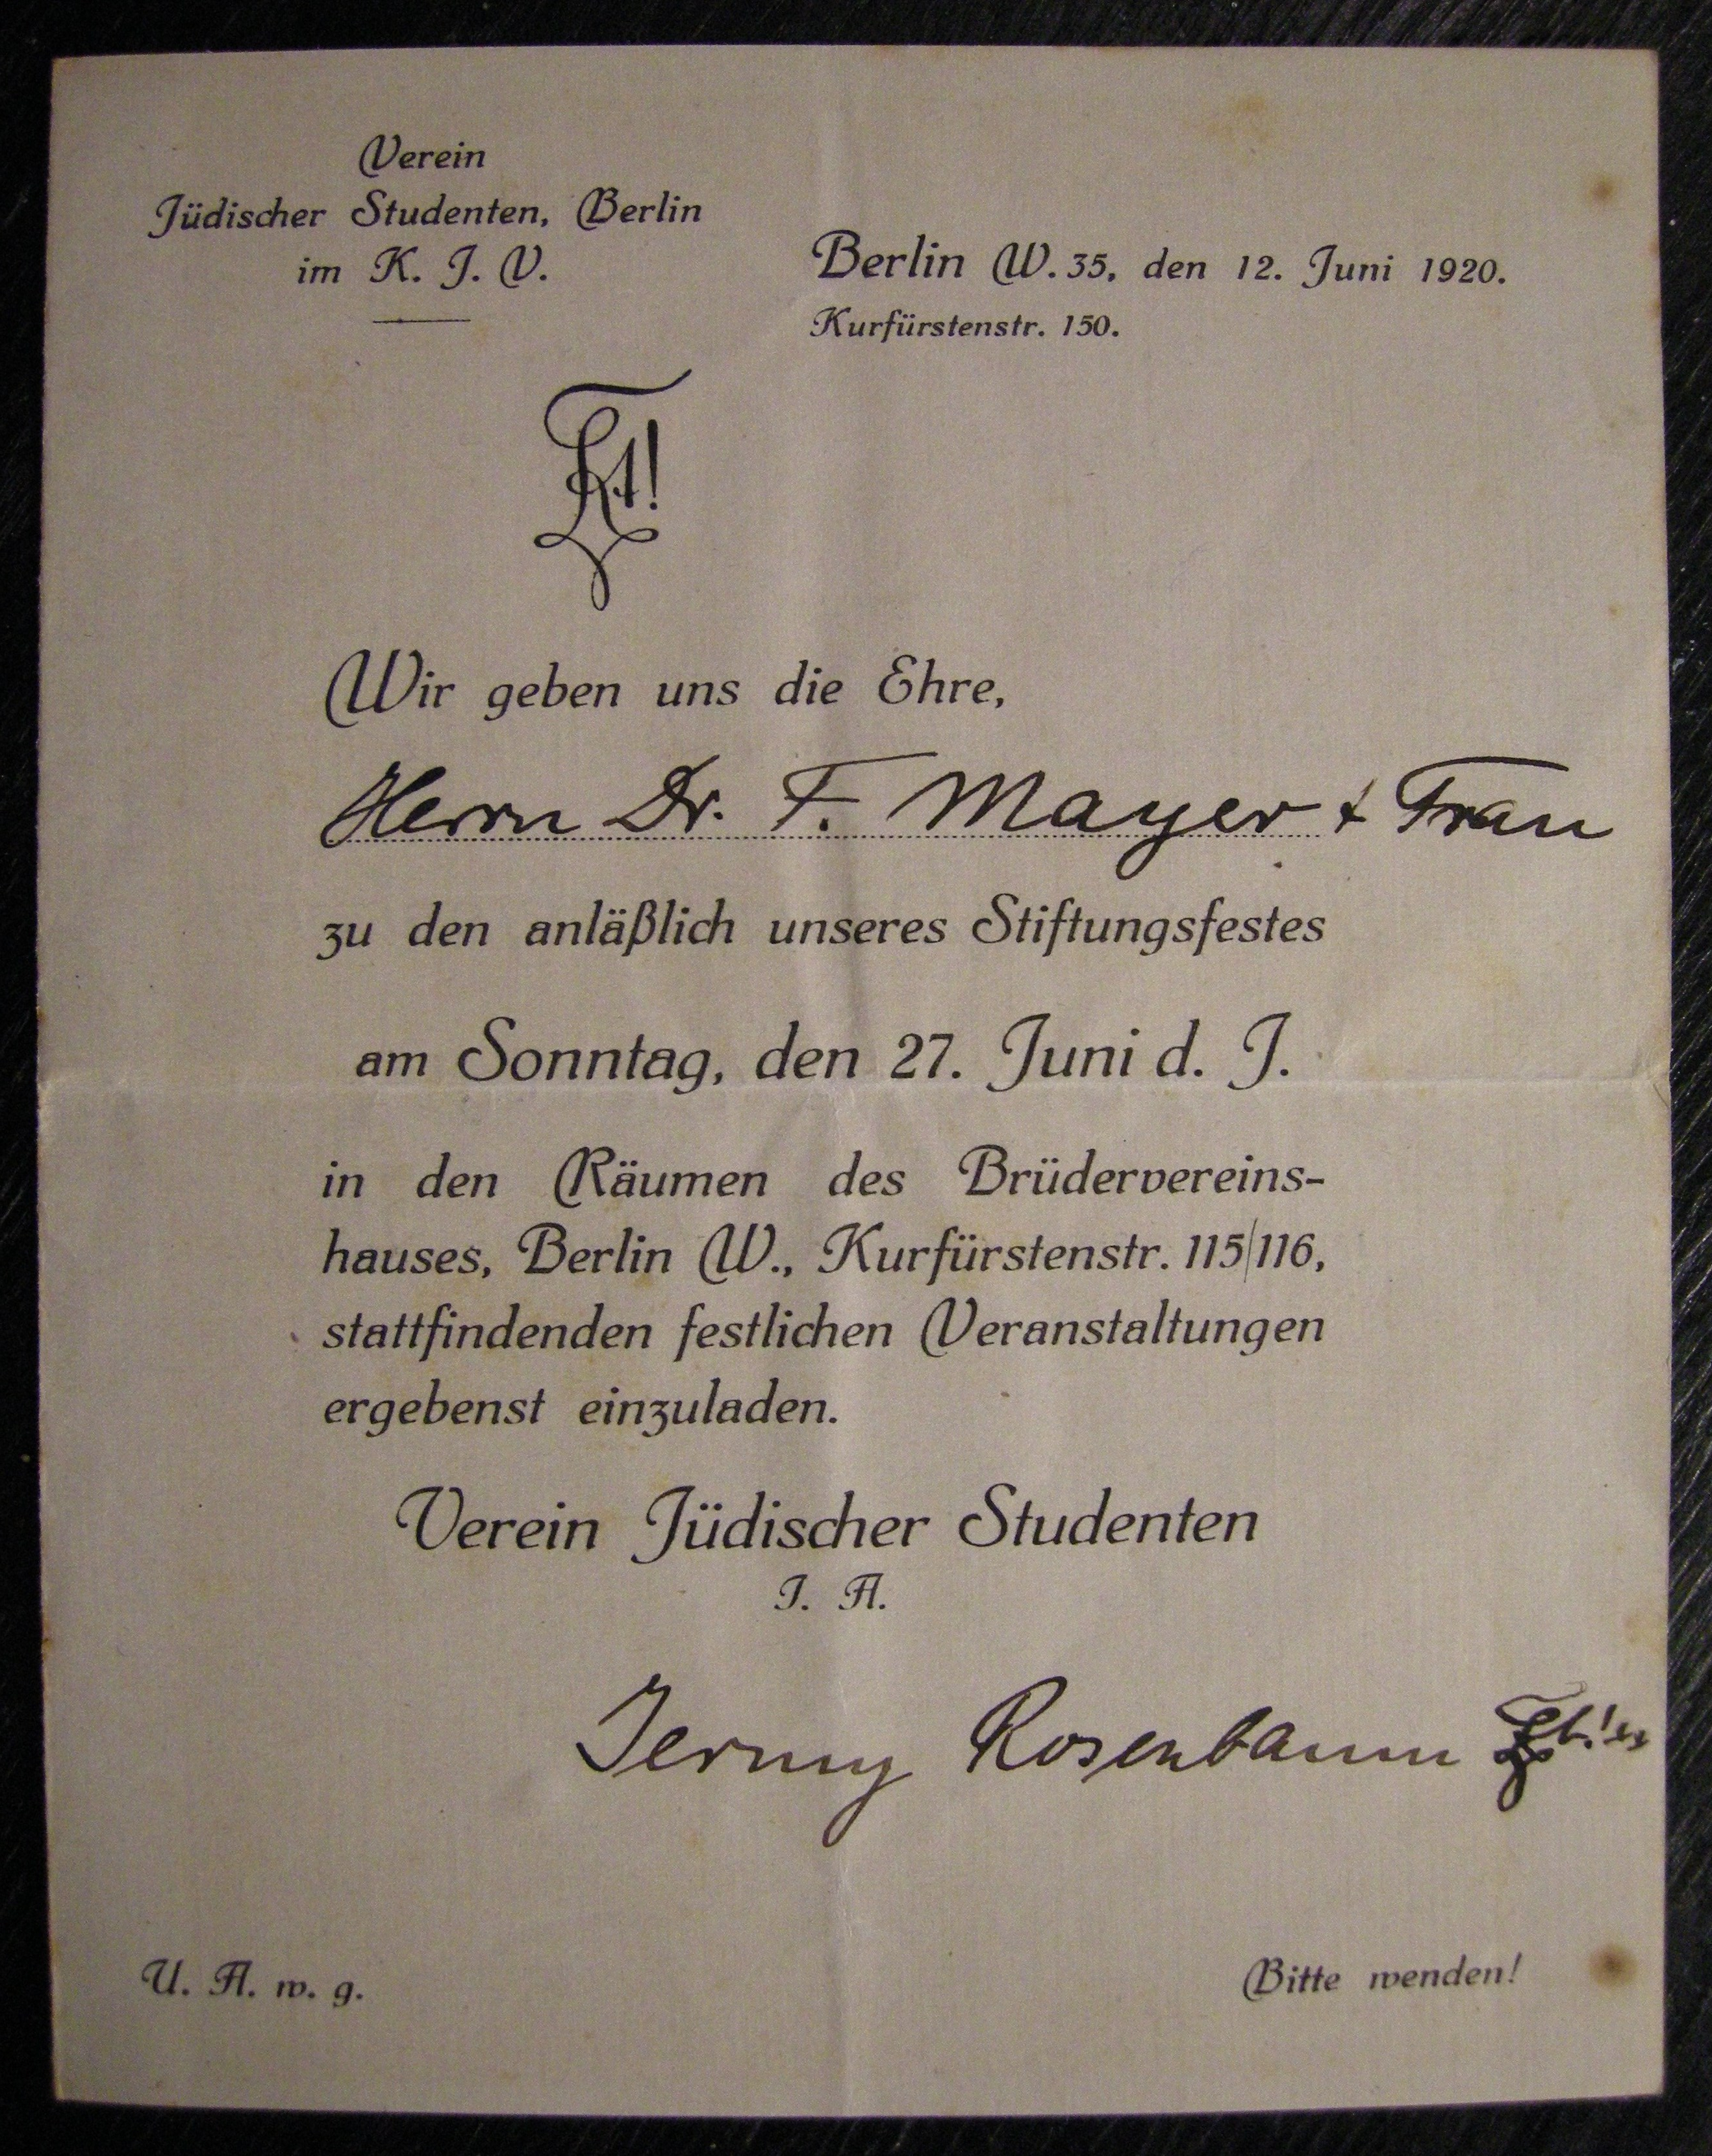 Verein
Jüdischer Studenten, Berlin
im K. J. V.
Berlin W. 35, den 12. Juni 1920.
Kurfürstenstr. 150.
Wir geben uns die Ehre,
Herrn Dr. F. Mayer & Frau
zu den anläßlich unseres Stiftungsfestes
am Sonntag, den 27. Juni d. J.
in den Räumen des Brüdervereins-
hauses, Berlin W., Kurfürstenstr. 115/116,
stattfindenden festlichen Veranstaltungen
ergebenst einzuladen.
Verein Jüdischer Studenten
I. A.
Rosenbaum
U. A. w. g.
Bitte wenden!